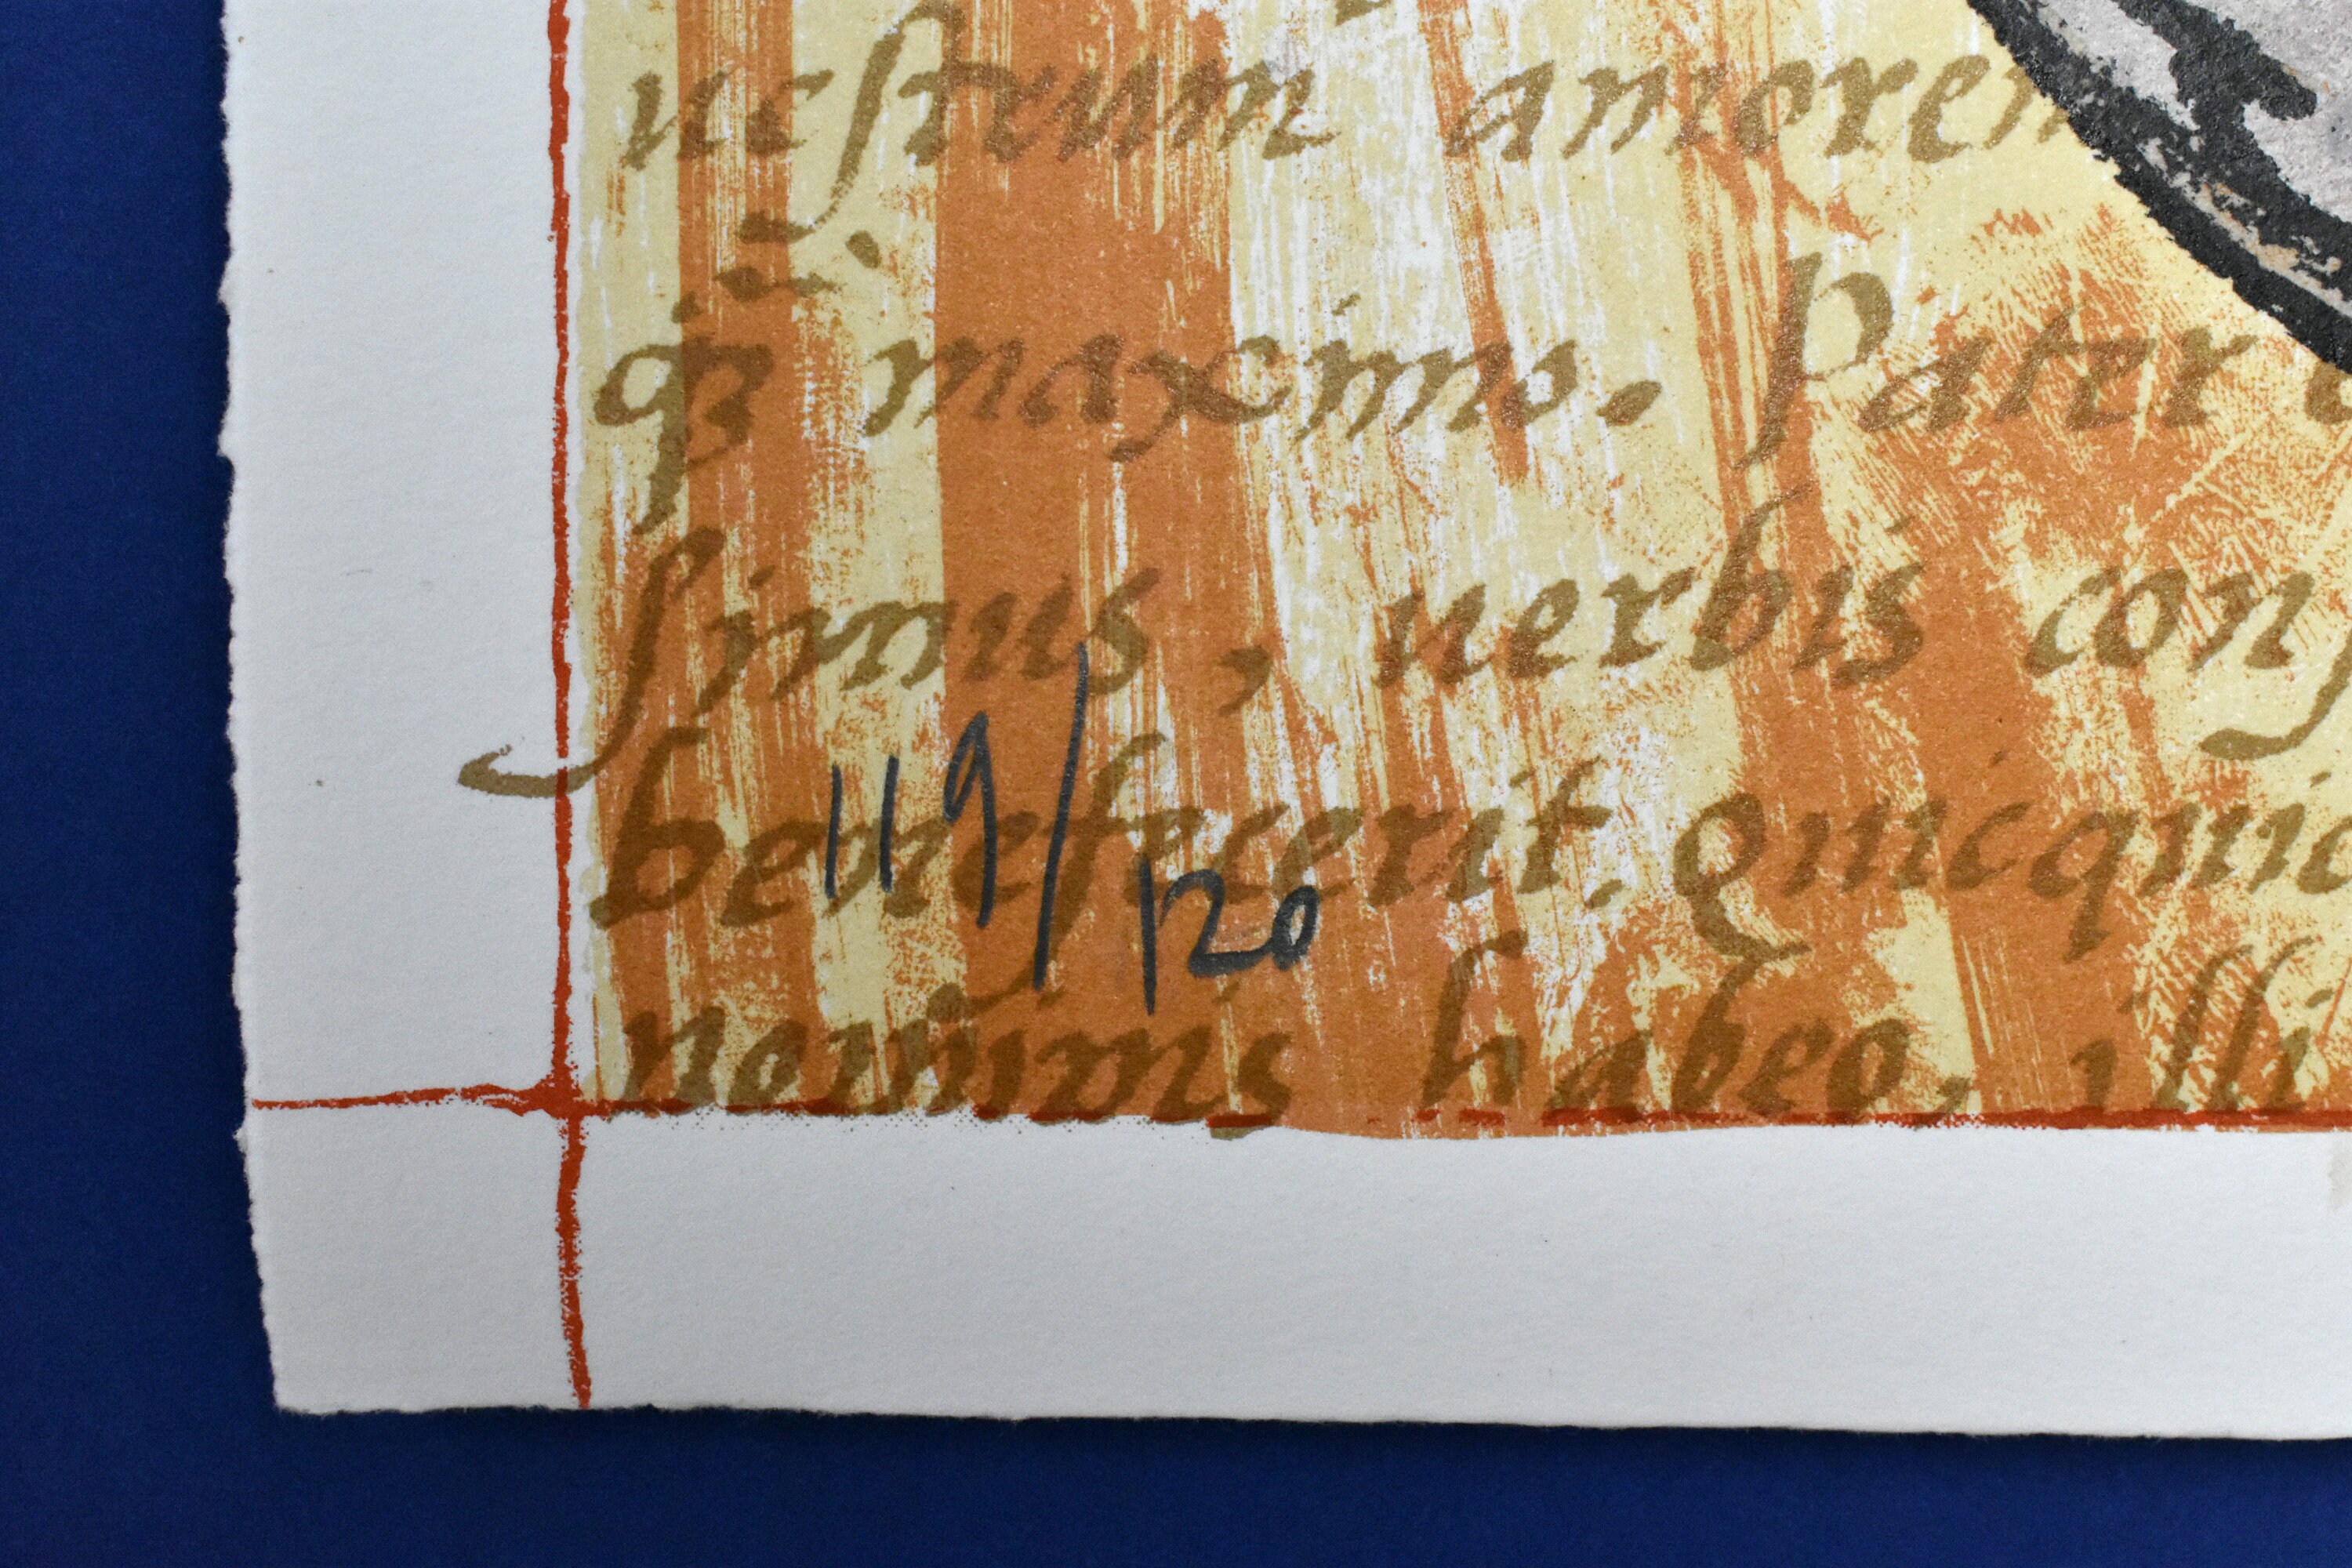 uestrum amorem
maximo. Pater
simus, uerbis conſ
benefecerit. Quicquid
119/120
nominis habeo, illi